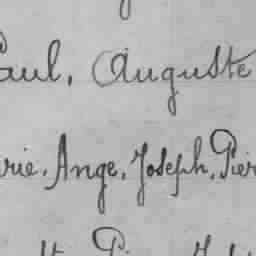 Paul, Auguste
rie, Ange, Joseph, Pier